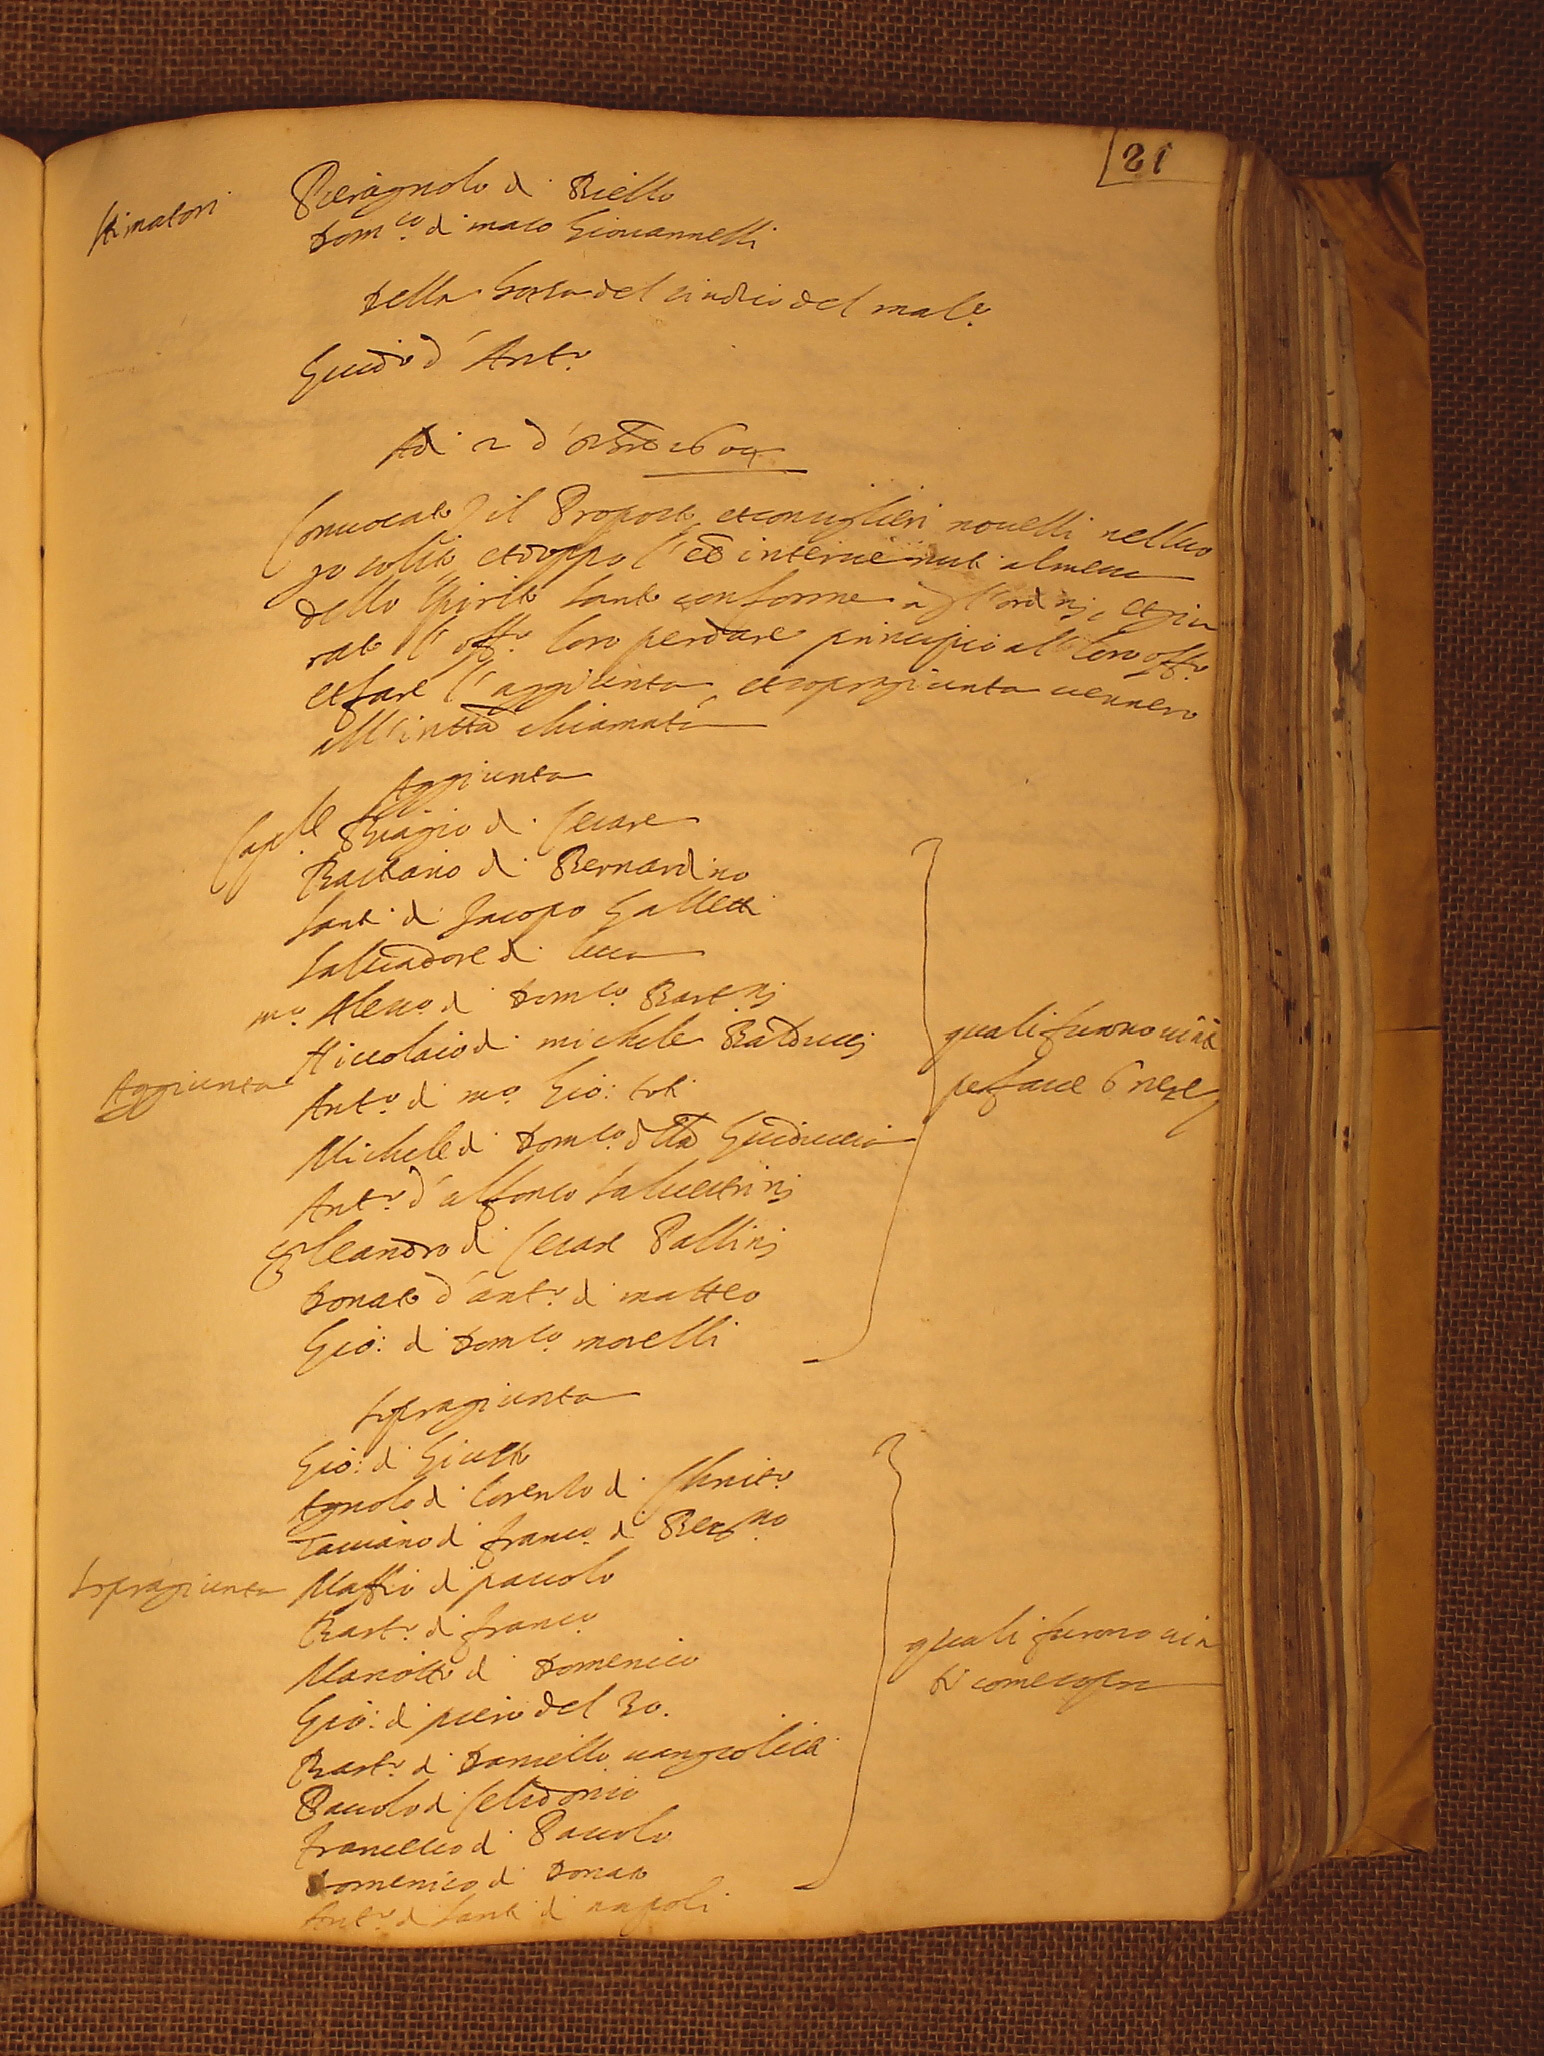 21
Stimatori
Pieragnolo di Biello
Dom.co di maso Giovannelli
Della borsa del sindico del mal.o
Guido d'Ant.o
Adi 2 d'8bre 1604
Convocato il Proposto et consiglieri novelli nel luo
go solito et doppo l'esser intervenuti alla messa
dello spirito santo conforme agl'ordinj, et giu
rato l'off.o loro per dare principio al loro off.o
et fare l'aggiunta, et sopragiunta vennero
all'infra chiamati
Aggiunta
Cap.le Biagio di Cesare
Bastiano di Bernardino
Santi di Jacopo Galletti
Salvadore di luca
m.o Aless.o di Dom.co Bart.nj
Niccolaio di michele Balduccj
Aggiunta
Ant.o di m.o Gio: toti
Michele di Dom.co della Guiduccia
Ant.o d'alfonso salvestrinj
leandro di Cesare Pallinj
Donato d'ant.o di matteo
Gio: di Dom.co morelli
quali furono vinti
per fave 6 nere
Sopragiunta
Gio: di Giusto
Agnolo di lorenzo di Christo.o
Tassiano di franc.o di Ber.no
Sopragiunta
Maffio di pavolo
Bart.o di franc.o
Mariotto di Domenico
Gio: di piero del Bo.
Bart.o di Daniello
Pavolo di Celidonio
francesco di Pavolo
Domenico di Donato
Ant.o di santi di napoli
quali furono vin
ti come sopra